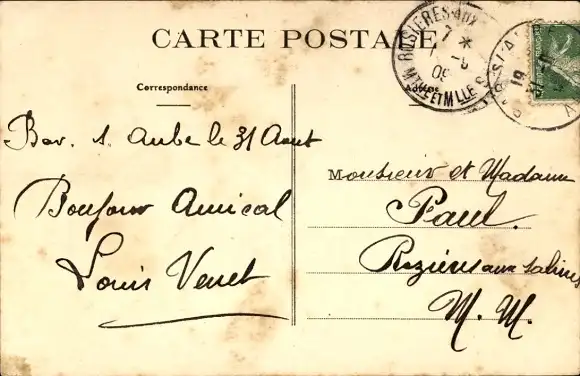 CARTE POSTALE
Correspondance
Adresse
ROSIÈRES-AUX
7 *
1 -9
09
MTHE ET MLLE
19
31
Bar. s. Aube le 31 Aout
Bonjour Amical
Louis Venet
Monsieur et Madame
Paul.
Rozières aux salines
M. M.